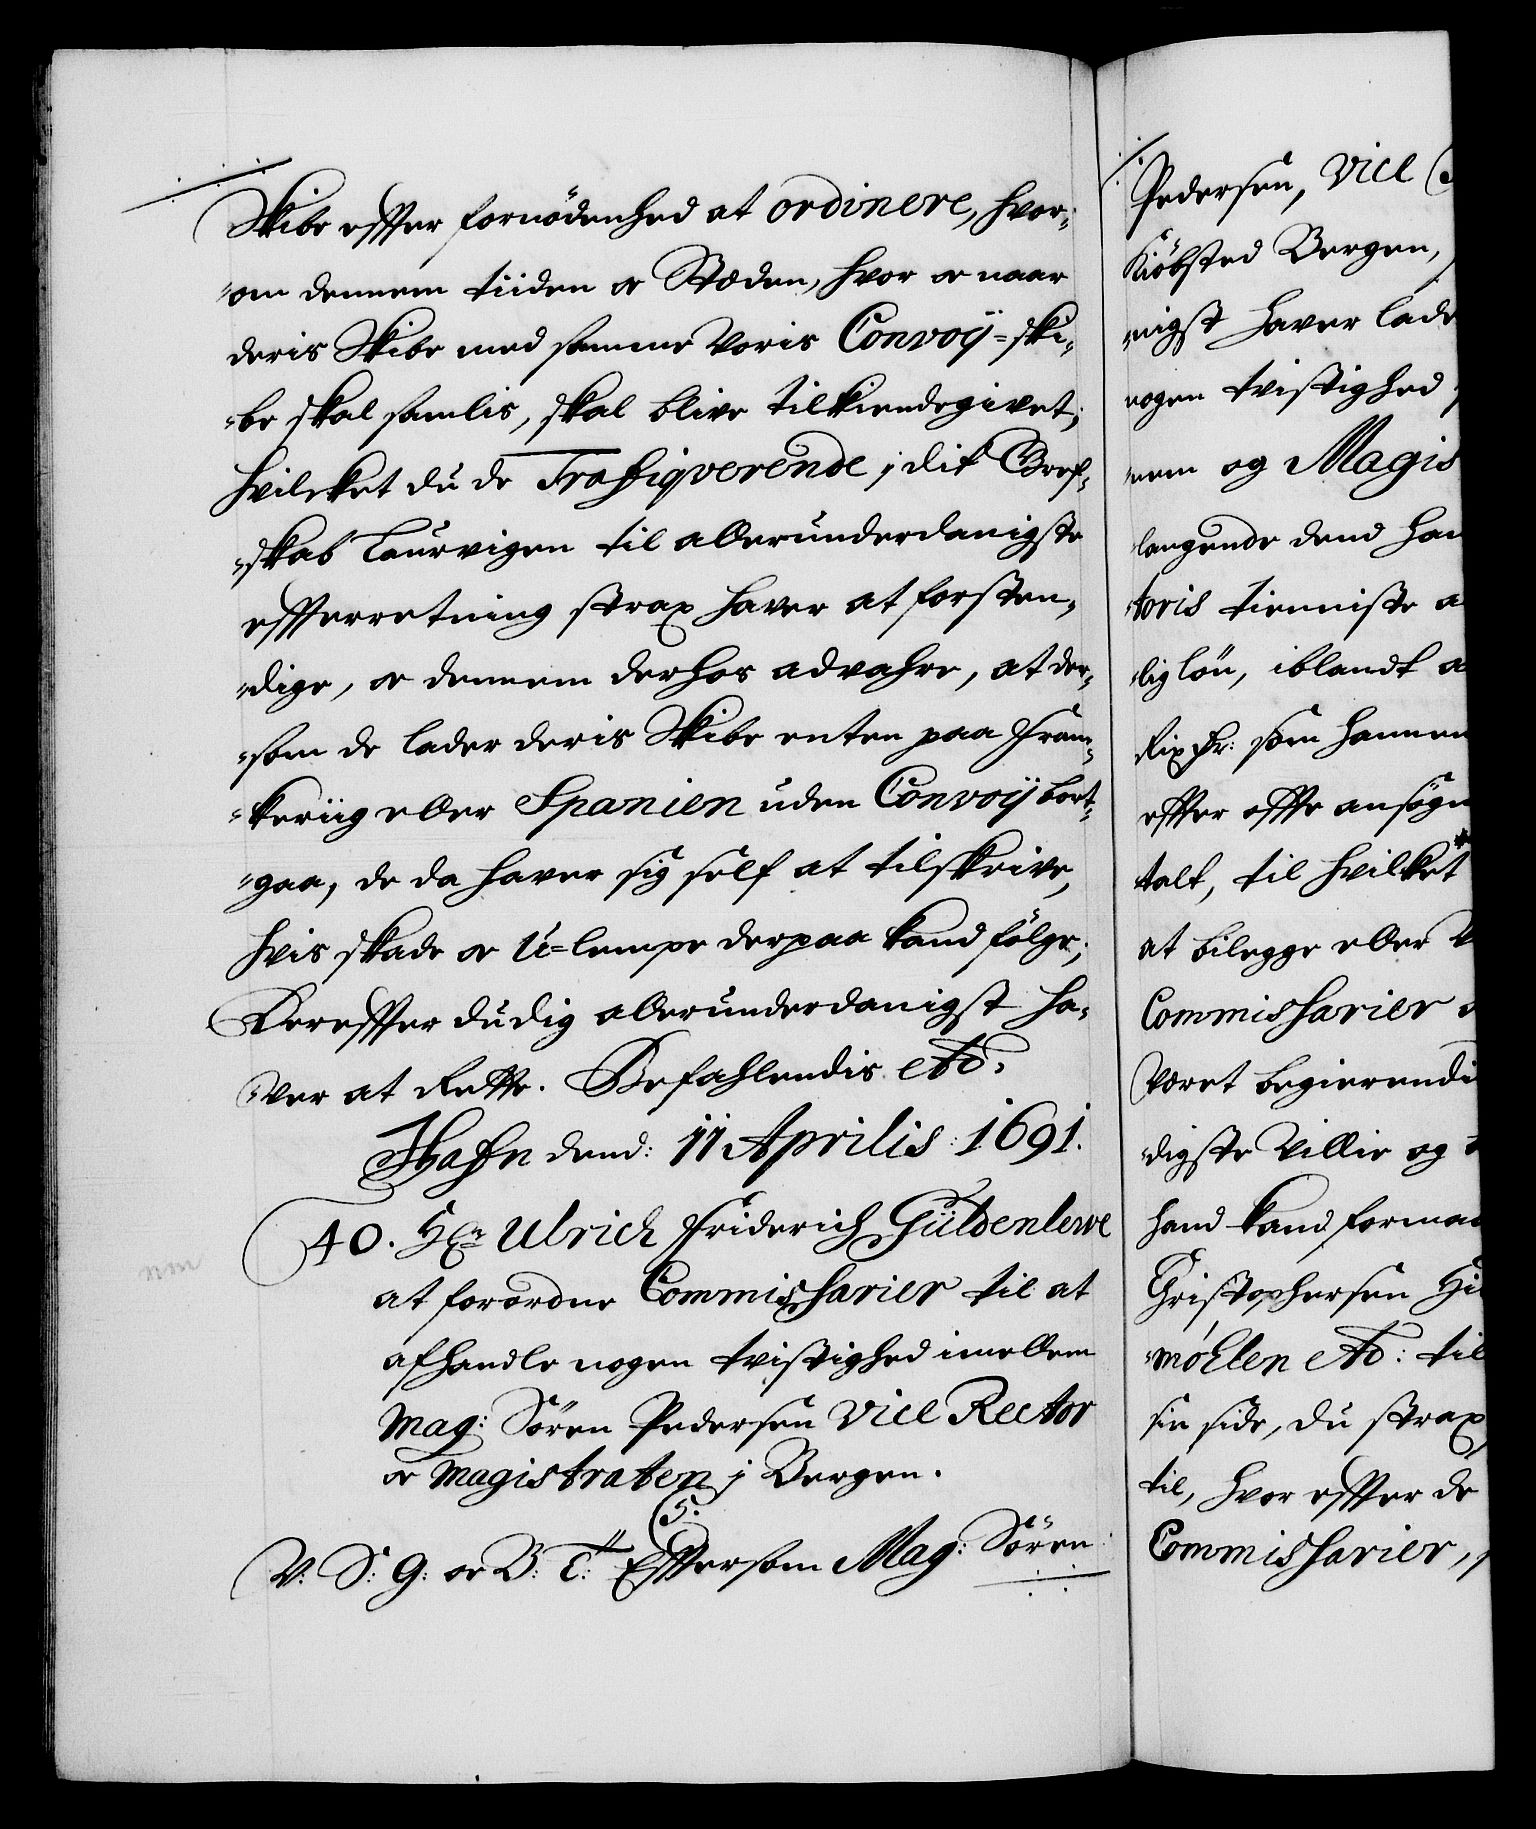 Skibe effter fornödenhed at ordinere, hvor-
om dennem tiiden oc Stæden, hvor oc naar
deris Skibe med samme Voris Convoÿ-ski-
be skal samlis, skal blive tilkiendegivet;
hvilcket du de Trafiqverende i dit Gref-
skab Laurvigen til allerunderdanigste
effterretning strax haver at forsten-
dige, oc dennem derhos advahre, at der-
som de lader deris Skibe enten paa Fran-
keriig eller Spanien uden Convoÿ bort-
gaa, de da haver sig self at tilskrive,
hvis skade oc U-lempe derpaa kand fölge;
Dereffter du dig allerunderdanigst ha-
ver at Rette. Befahlendis etc.
Hafn dend: 11 Aprilis 1691.
40. H. Ulrich Friderich Güldenlewe
at forordne Commissarier til at
afhandle nogen tvistighed imellem
Mag: Sören Pedersen Vice Rector
oc Magistraten i Bergen.
C5.
V: S: G: oc B: T: Effter som Mag: Sören
Pedersen, Vice
Kiöbsted Bergen,
nigst haver lade
nogen tvistighed
nem og Magis
langende dend han
toris tienniste a
lig lön, iblandt a
Rixdr: som hannem
effter offte ansögn
talt, til hvilket
at bilegge eller
Commissarier
Været begierendi
digste Villie og
hand kand forma
Christophersen Hi
möhlen etc: til
sin side, du strax
til, hvor effter de
Commissarier,